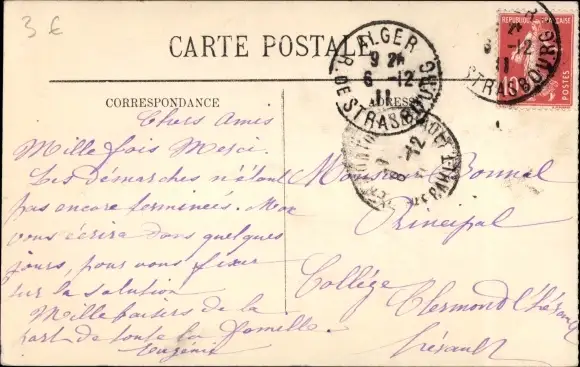 3 €
CARTE POSTALE
CORRESPONDANCE
ADRESSE
ALGER
R. DE STRASBOURG
9 2
6 -12
11
ALGER
6 -12
11
STRASBOURG
REPUBLIQUE FRANÇAISE
10
POSTES
8 -12
Chers Amis
Mille fois Merci.
Les démarches n'étant
pas encore terminées. Moe
vous écrira dans quelques
jours, pour vous fixer
sur la solution
Mille baisers de la
part de toute la famille.
Eugénie
Monsieur Bonnal
Principal
Collège
Clermond l'Hérault
Hérault